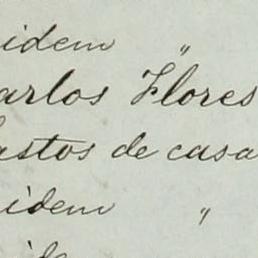 idem "
arlos Flores
astos de casa
idem "
ide